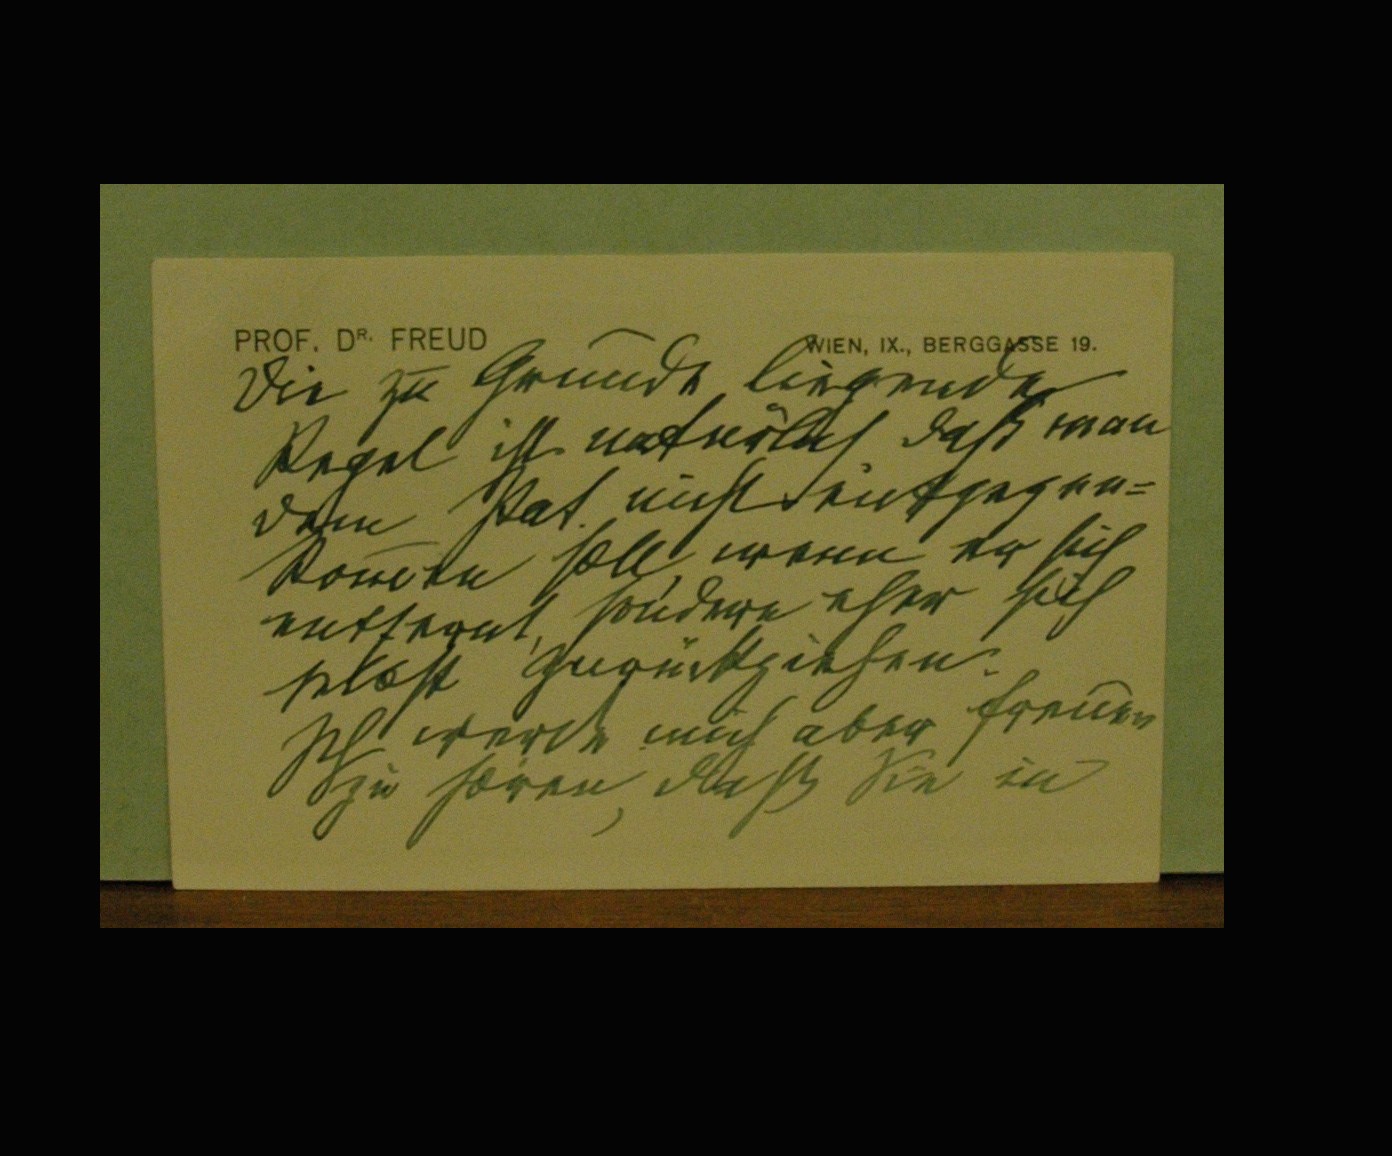 PROF. DR. FREUD WIEN, IX., BERGGASSE 19.
Die zu Grunde liegende
Regel ist natürlich daß man
dem Pat. nicht entgegen=
kom̅en soll, wenn er sich
entfernt, sondern eher sich
selbst zurückziehen.
Ich werde mich aber freuen
zu hören, daß Sie in